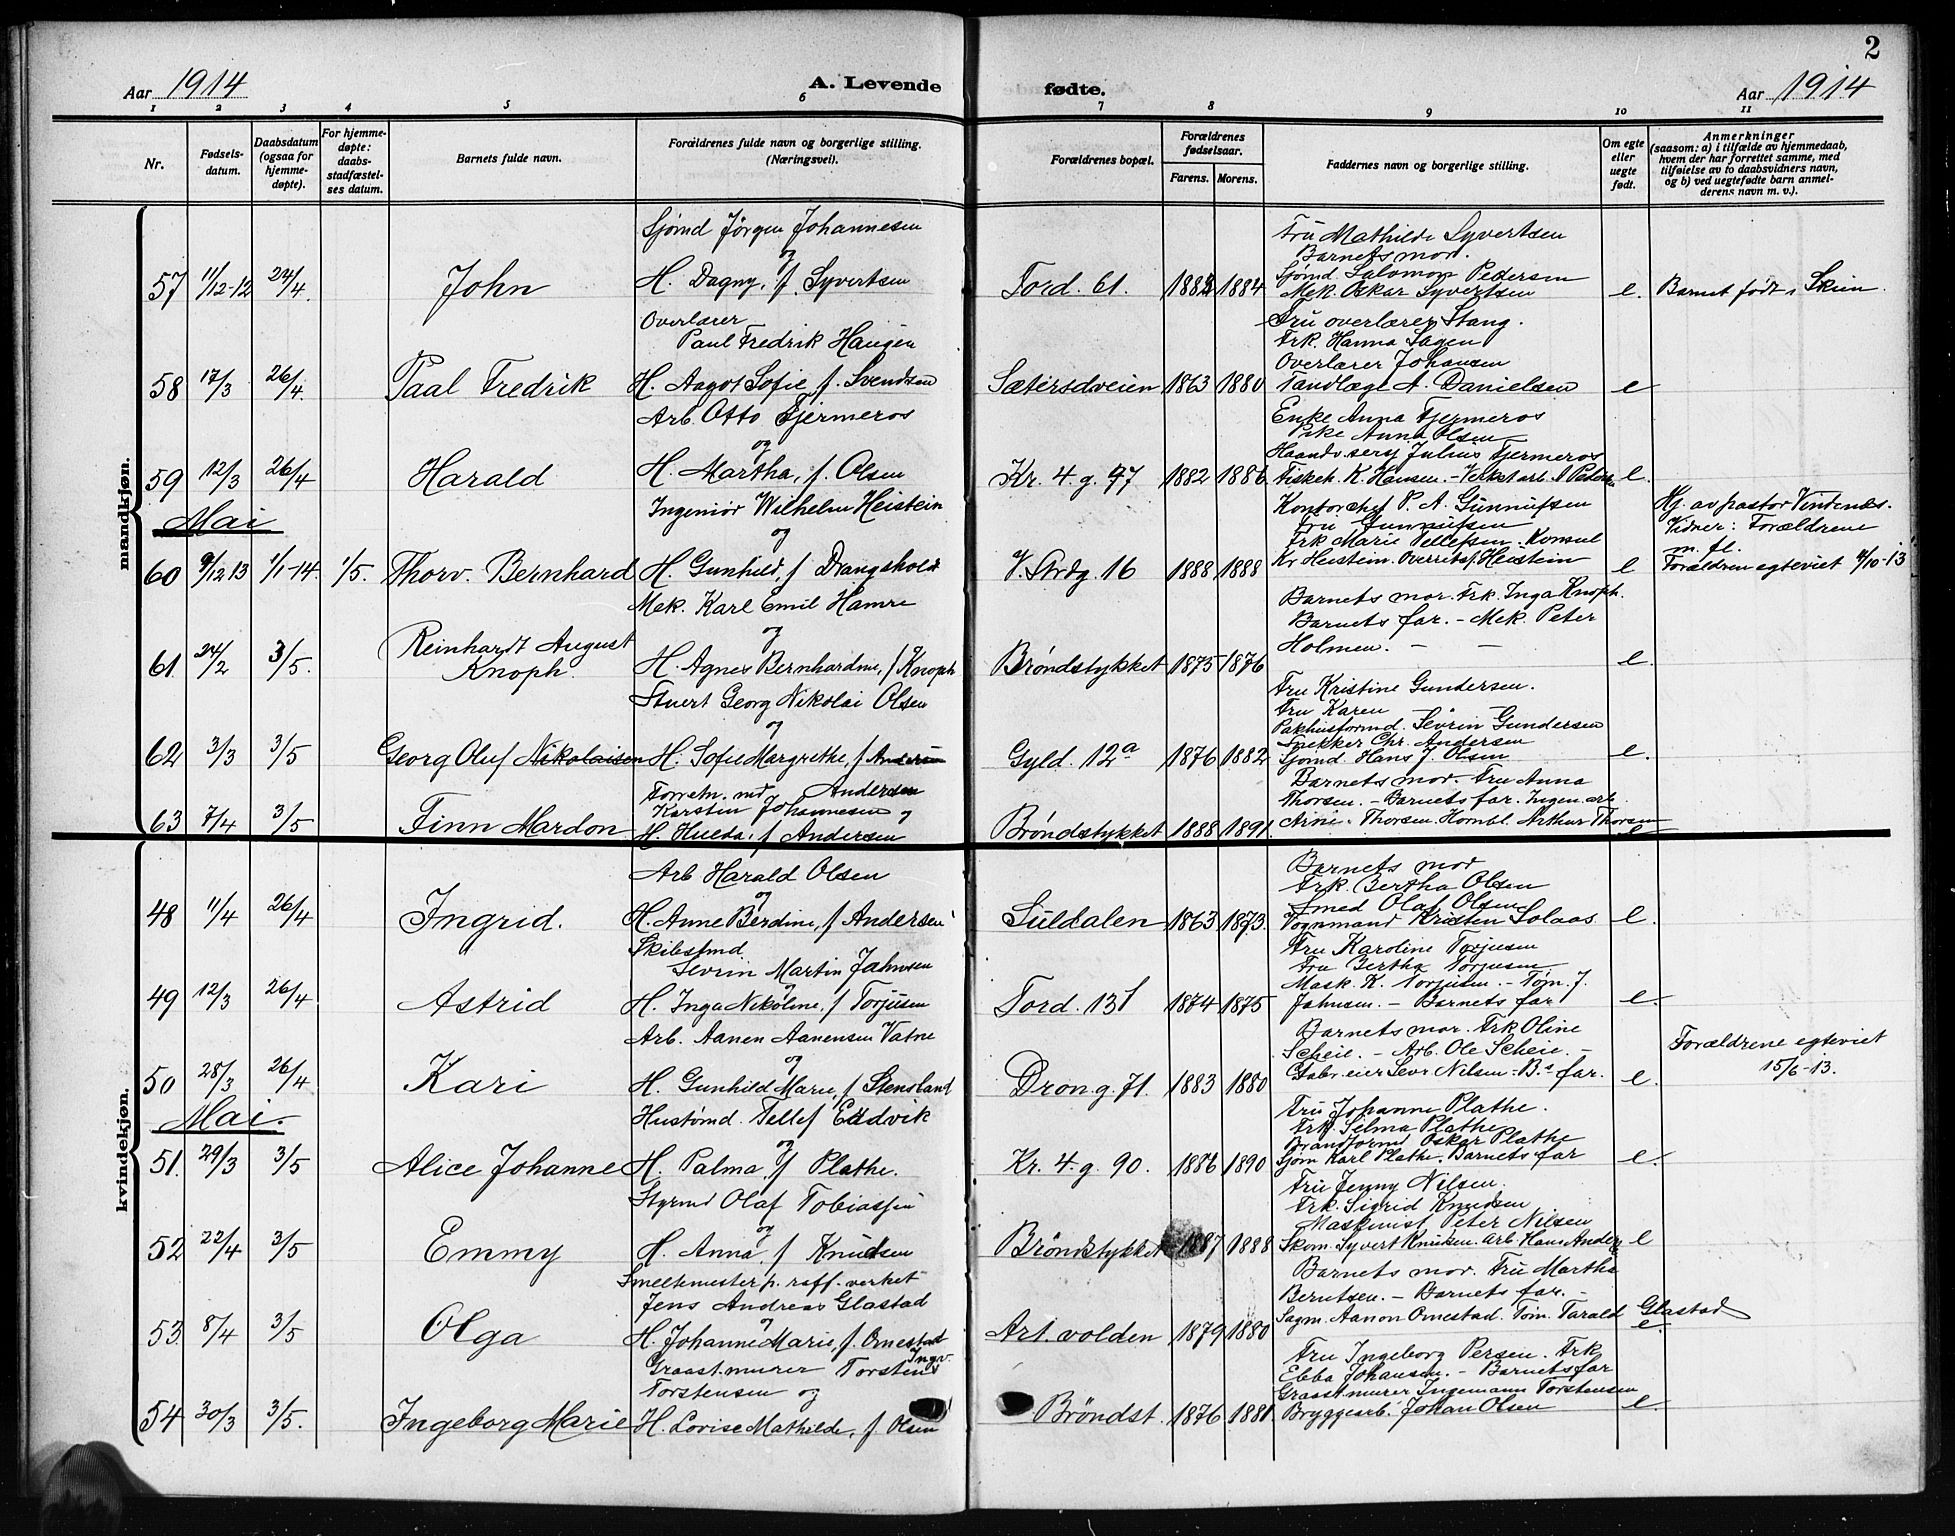 2
Aar 1914
A. Levende
fødte.
Aar 1914
1 2 3 4 5 6 7 8 9 10 11
Nr.
Fødsels-
datum.
Daabsdatum
(ogsaa for
hjemme-
døpte).
For hjemme-
døpte:
daabs-
stadfæstel-
ses datum.
Barnets fulde navn.
Forældrenes fulde navn og borgerlige stilling.
(Næringsvei).
Forældrenes bopæl.
Forældrenes
fødselsaar.
Farens. Morens.
Faddernes navn og borgerlige stilling.
Om egte
eller
uegte
født.
Anmerkninger
(saasom: a) i tilfælde av hjemmedaab,
hvem der har forrettet samme, med
tilføielse av to daabsvidners navn,
og b) ved uegtefødte barn anmel-
derens navn m. v.).
mandkjøn.
57 11/12-12 24/4. John
Sjømd Jørgen Johannesen
og
H. Dagny, f. Syvertsen
Tord. 61. 1884
Fru Mathilde Syvertsen
Barnets mor.
Sjømd. Salomon Pedersen
Mek. Oskar Syvertsen
e. Barnet født i Skien.
58 17/3 26/4. Paal Fredrik
Overlærer
Paul Fredrik Haugen
H. Aagot Sofie f. Svendsen
Sætersdveien 1863 1880
Fru overlærer Stang.
Frk. Hanna Sagen
Overlærer Johansen
Tandlæge A. Danielsen
e
59 12/3 26/4 Harald
Arb. Otto Fjermeros
og
H. Martha, f. Olsen
Kr. 4. g. 97 1882 1886
Enke Anna Fjermeros
Pike Anna Olsen
Haandv.serg Julius Fjermeros
Fiskeh. K. Hansen. - Verkst arb.
e.
Mai
60 9/12 13 1/1-14. 1/5. Thorv. Bernhard
Ingeniør Wilhelm Heistein
og
H. Gunhild, f Drangsholt
V. Strdg. 16 1888 1888
Kontorchef P. A. Gunnufsen
Fru Gunnufsen
Frk Marie Tellefsen. Konsul
Kr Heistein. Heistein
e
Hj. av pastor Vindenes.
Vidner: Forældrene
m. fl.
Forældren egteviet 4/10-13
61 24/2 3/5. Reinhardt August
Knoph.
Mek. Karl Emil Hamre
og
H. Agnes Bernhardine, f Knoph
Brøndstykket 1875 1876
Barnets mor. Frk. Inga Knoph.
Barnets far. - Mek. Peter
Holmen. - -
e.
62 3/3 3/5 Georg Oluf Nikolaisen
Stuert Georg Nikolai Olsen
og
H. Sofie Margrethe, f Andersen
Andersen
Gyld. 12a 1876 1882
Fru Kristine Gundersen.
Fru Karen
Pakhusformd. Sevrin Gundersen
Snekker Chr. Andersen
Sjømd. Hans J. Olsen
e.
63 7/4 3/5 Finn Mardon
Forretn. md
Karstin Johannesen og
H. Hulda, f Andersen
Brøndstykket 1888 1891.
Barnets mor. Fru Anna
Thorsen. - Barnets far. Ingen. arb.
Arne. Thorsen. Hornbl. Arthur Thorsen
e
kvindekjøn.
48 11/4 26/4 Ingrid.
Arb Harald Olsen
og
H. Anne Berdine, f Andersen
Suldalen 1863 1873.
Barnets mor
Frk. Bertha Olsen
Smed Olaf Olsen
Vognmand Kristen Solaas
e.
49 12/3 26/4 Astrid
Skibstmd.
Sevrin Martin Jahnsen
og
H. Inga Nikoline, f Torjusen
Tord. 131 1874 1875
Fru Karoline Torjusen
Fru Bertha Torjusen
Mask. K. Torjusen. - Tøm. J.
Jahnsen. - Barnets far
e.
50 28/3 26/4 Kari
Arb. Aanen Aanensen Vatne
og
H. Gunhild Marie, f Stensland
Dron. g. 71. 1883 1880
Barnets mor. Frk Oline
Scheie. - Arb. Ole Scheie. -
Sevr Nilsen - Bs far.
e.
Forældrene egteviet
15/6-13.
Mai.
51. 29/3 3/5 Alice Johanne
Hustømd. Tellef Eedvik
og
H. Palma, f Plathe.
Kr. 4. g. 90. 1886 1890
Fru Johanne Plathe.
Frk. Selma Plathe
Brandformd Oskar Plathe
Sjøm Karl Plathe. Barnets far
e.
52 22/4 3/5 Emmy
Styrmd Olaf Tobiassen
og
H. Anna, f Knudsen
Brøndstykket 1887 1888
Fru Jenny Nilsen.
Frk. Sigrid Knudsen
Maskinist Peter Nilsen
Skom. Syvert Knudsen. Arb. Hans Anders
e
53. 8/4 3/5 Olga
Smeltemester p. raff. verket
Jens Andreas Glastad
og
H. Johanne Marie, f. Omestad
Art. volden 1879 1880
Barnets mor. Fru Martha
Berntsen. - Barnets far. -
Sagm. Aanon Omestad. Tøm. Tarald Glastad
e.
54 30/3 3/5. Ingeborg Marie
Graast.murer Torstein Ingv.
Torstensen og
H. Lovise Mathilde, f Olsen
Brøndst. 1876 1881
Fru Ingeborg Persen. Frk
Ebba Johansen. - Barnets far
Graast murer Ingemann Torstensen
Bryggearb. Johan Olsen
e.